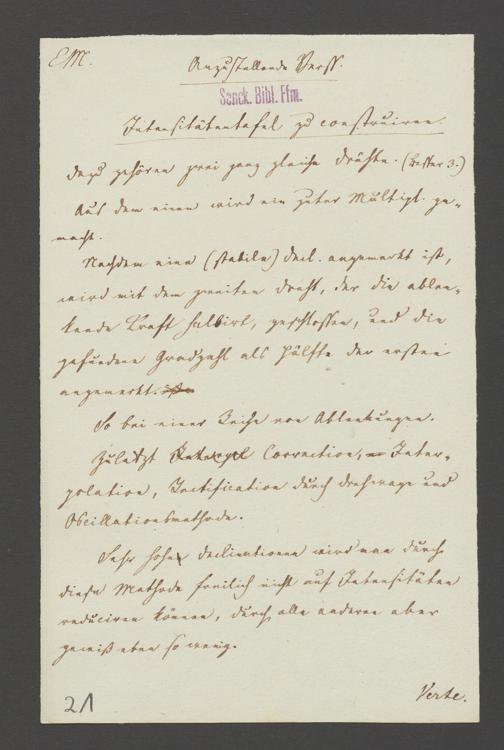 EM.
Anzustellende Verss.
Senck. Bibl. Ffm.
Intensitätentafel zu construiren.
dazu gehören zwei ganz gleiche Drähte. (besser 3.)
Aus dem einen wird ein guter Multipl. ge-
macht.
Nachdem eine (stabile) Decl. angemerkt ist,
wird mit dem zweiten Draht, der die ablen-
kende Kraft halbirt, geschlossen, und die
gefundene Gradzahl als Hälfte der ersten
angemerkt.
So bei einer Reihe von Ablenkungen.
Zuletzt Correction, Inter-
polation, Rectification durch Drehwage und
Oscillationsmethode.
Sehr hohe Declinationen wird man durch
diese Methode freilich nicht auf Intensitäten
reduciren können, durch alle anderen aber
gewiß eben so wenig.
Verte.
21